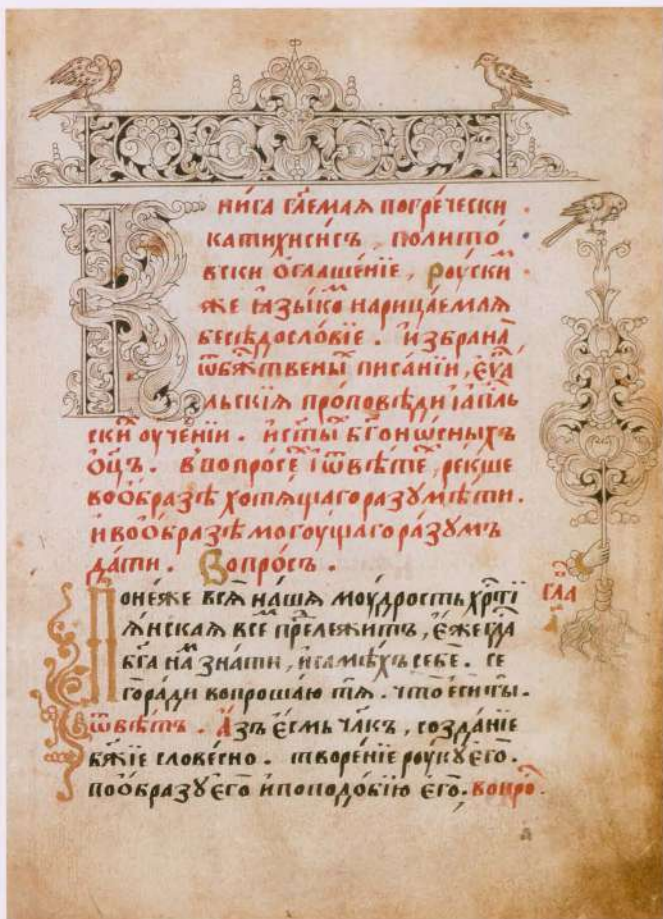 Книга гл҃емая погре́чески
катихи́сисъ, поли́то́
вски оглаше́нїе, роу́ски͏ⷨ
же ꙗ҆зы́ко нарица́емая
бесѣдосло́вїе. и҆збрана̀
ѿбж҃твены̑ писа́нїи, є҆ѵⷢ҇а
льскїѧ про́повѣди і а҆пⷭ҇ль
ски оу҆че́нїи. и҆ст҃ы̑ бг҃оно́сныхъ
ѻ҆ц҃ъ. ввопро́се і҆ ѿвѣ́те, ре́кше
воѻ҆бразѣ хотѧ́щаго разумѣ́ти.
и҆ воѻ҆бразѣ могоу́щаго ра́зумъ
да́ти. Вопро́съ.
Поне́же всѧ̀ на́шѧ моу́дрость хрⷭ҇тїѧ
ѧ́нская все͏ⷨ прⷣележи́тъ, є҆́же гдⷭ҇а
бг҃а на͏ⷨ зна́ти, и҆ самѣ́хъ себѐ. се
го̀ ра́ди вопроша́ю тѧ. что̀ є҆сѝ ты̀.
Ѿвѣ́тъ. А҆́зъ є҆́смь чл҃къ, созда́нїе
бж҃їе слове́сно. творе́нїе роукꙋ̀ є҆гѡ̀.
поѻ҆́бразꙋ є҆гѡ̀ и҆ поподо́бїю є҆гѡ̀. вопро́.
гла
а҃